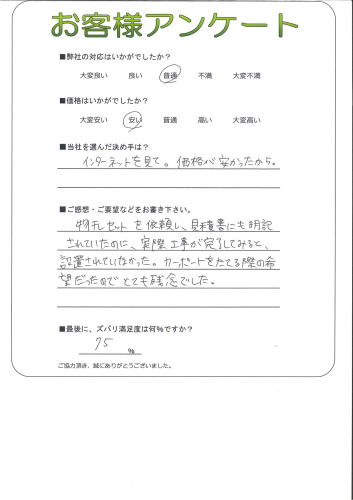 お客様アンケート
■弊社の対応はいかがでしたか？
大変良い 良い 普通 不満 大変不満
■価格はいかがでしたか？
大変安い 安い 普通 高い 大変高い
■当社を選んだ決め手は？
インターネットを見て。価格が安かったから。
■ご感想・ご要望などをお書き下さい。
物干しセットを依頼し、見積書にも明記
されていたのに、実際工事が完了してみると、
設置されていなかった。カーポートをたてる際の希
望だったのでとても残念でした。
■最後に、ズバリ満足度は何％ですか？
75 ％
ご協力頂き、誠にありがとうございました。